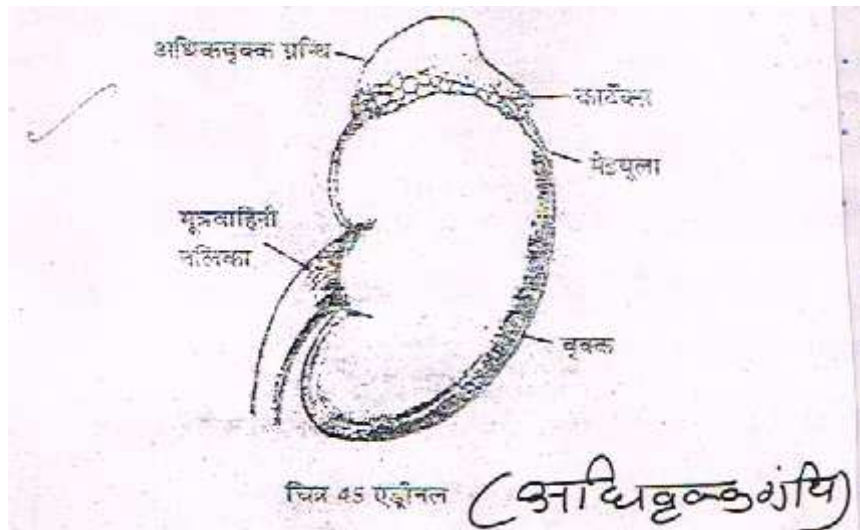 अधिकवृक्क ग्रन्थि
कार्टेक्स
मेडयूला
मूत्रवाहिनी
नलिका
वृक्क
चित्र 45 एड्रीनल (अधिवृक्क ग्रंथि)